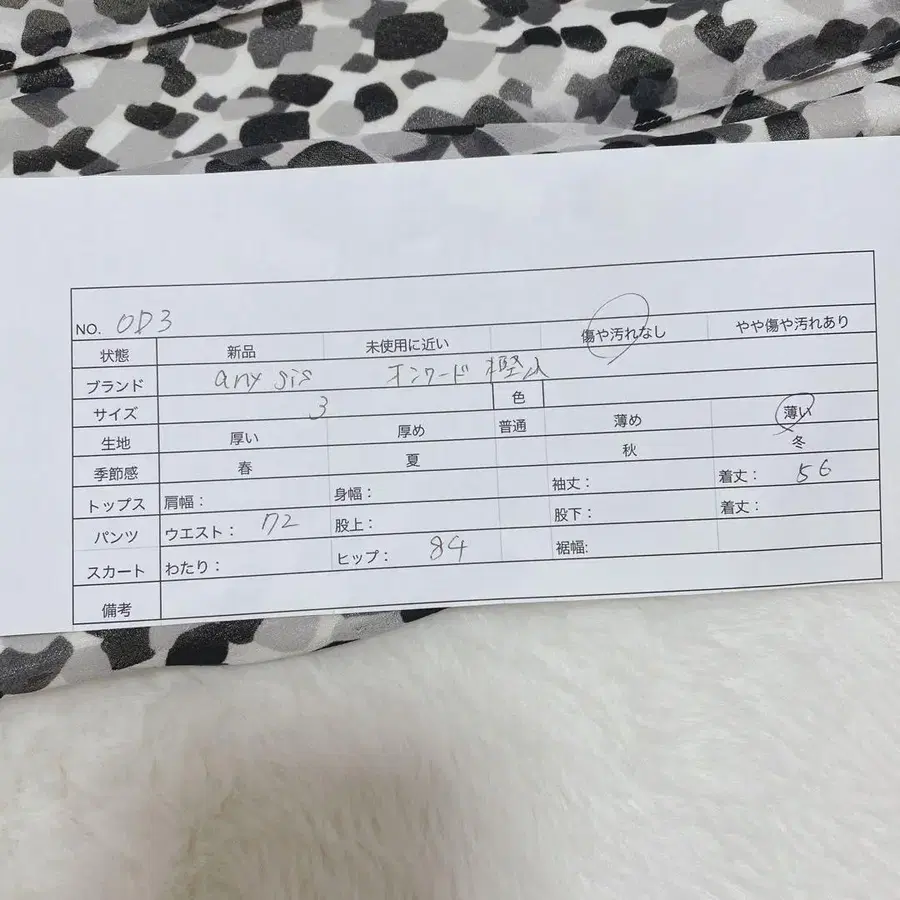 NO. OD3
状態 新品 未使用に近い 傷や汚れなし やや傷や汚れあり
ブランド any sis オンワード 樫山
サイズ 3 色
生地 厚い 厚め 普通 薄め 薄い
季節感 春 夏 秋 冬
トップス 肩幅： 身幅： 袖丈： 着丈： 56
パンツ ウエスト： 72 股上： 股下： 着丈：
スカート わたり： ヒップ： 84 裾幅:
備考